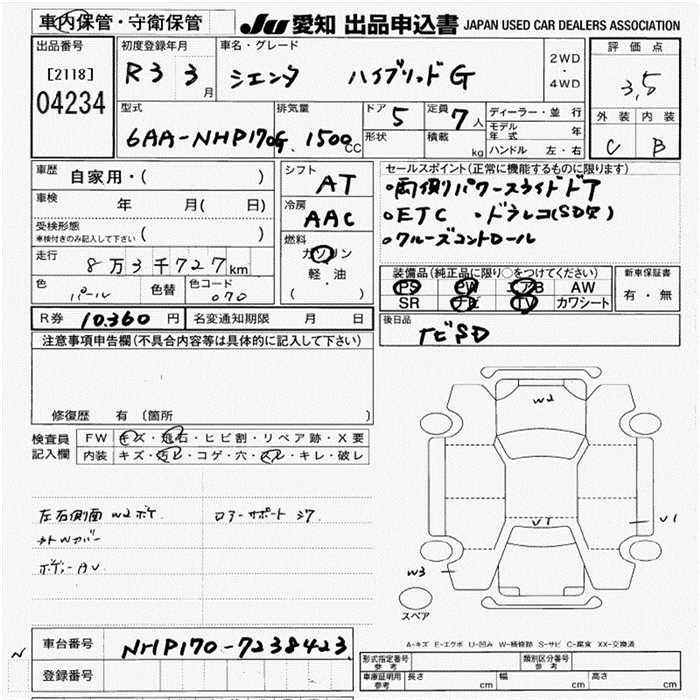 車内保管・守衛保管
JU 愛知 出品申込書 JAPAN USED CAR DEALERS ASSOCIATION
出品番号
[2118]
04234
初度登録年月
R3 3月
車名・グレード
シエンタ ハイブリッドG
2WD
・
4WD
評価点
3,5
外装 内装
C B
型式
6AA-NHP170G
排気量
1500 CC
ドア
5
形状
定員
7人
積載
kg
ディーラー・並行
モデル年式 年
ハンドル 左・右
車歴
自家用・( )
車検
年 月( 日)
受検形態
車検付きのみ記入して下さい ( )
走行
8万3千727km
色
パール
色替
色コード
070
シフト
AT
冷房
AAC
燃料
ガソリン
軽・油
( )
セールスポイント(正常に機能するものに限ります)
・両側パワースライドドア
・ETC ・ドラレコ(SD欠)
・クルーズコントロール
装備品(純正品に限り○をつけてください)
PS PW エアB AW
SR ナビ TV カワシート
新車保証書
有・無
R券 10.360 円 名変通知期限 月 日
後日品
ナビSD
注意事項申告欄(不具合内容等は具体的に記入して下さい)
修復歴 有 (箇所 )
検査員
記入欄
FW キズ・飛石・ヒビ割・リペア跡・X要
内装 キズ・汚レ・コゲ・穴・スレ・キレ・破レ
左右側面 W2ボケ ロアーサポート シワ
ボディーAU
W2
V1
V1
W3
スペア
A-キズ E-エクボ U-凹み W-補修跡 S-サビ C-腐食 XX-交換済
N
車台番号 NHP170-7238423
登録番号
形式指定番号
参考
類別区分番号
参考
車庫証明用
参考
長さ cm 幅 cm 高さ cm